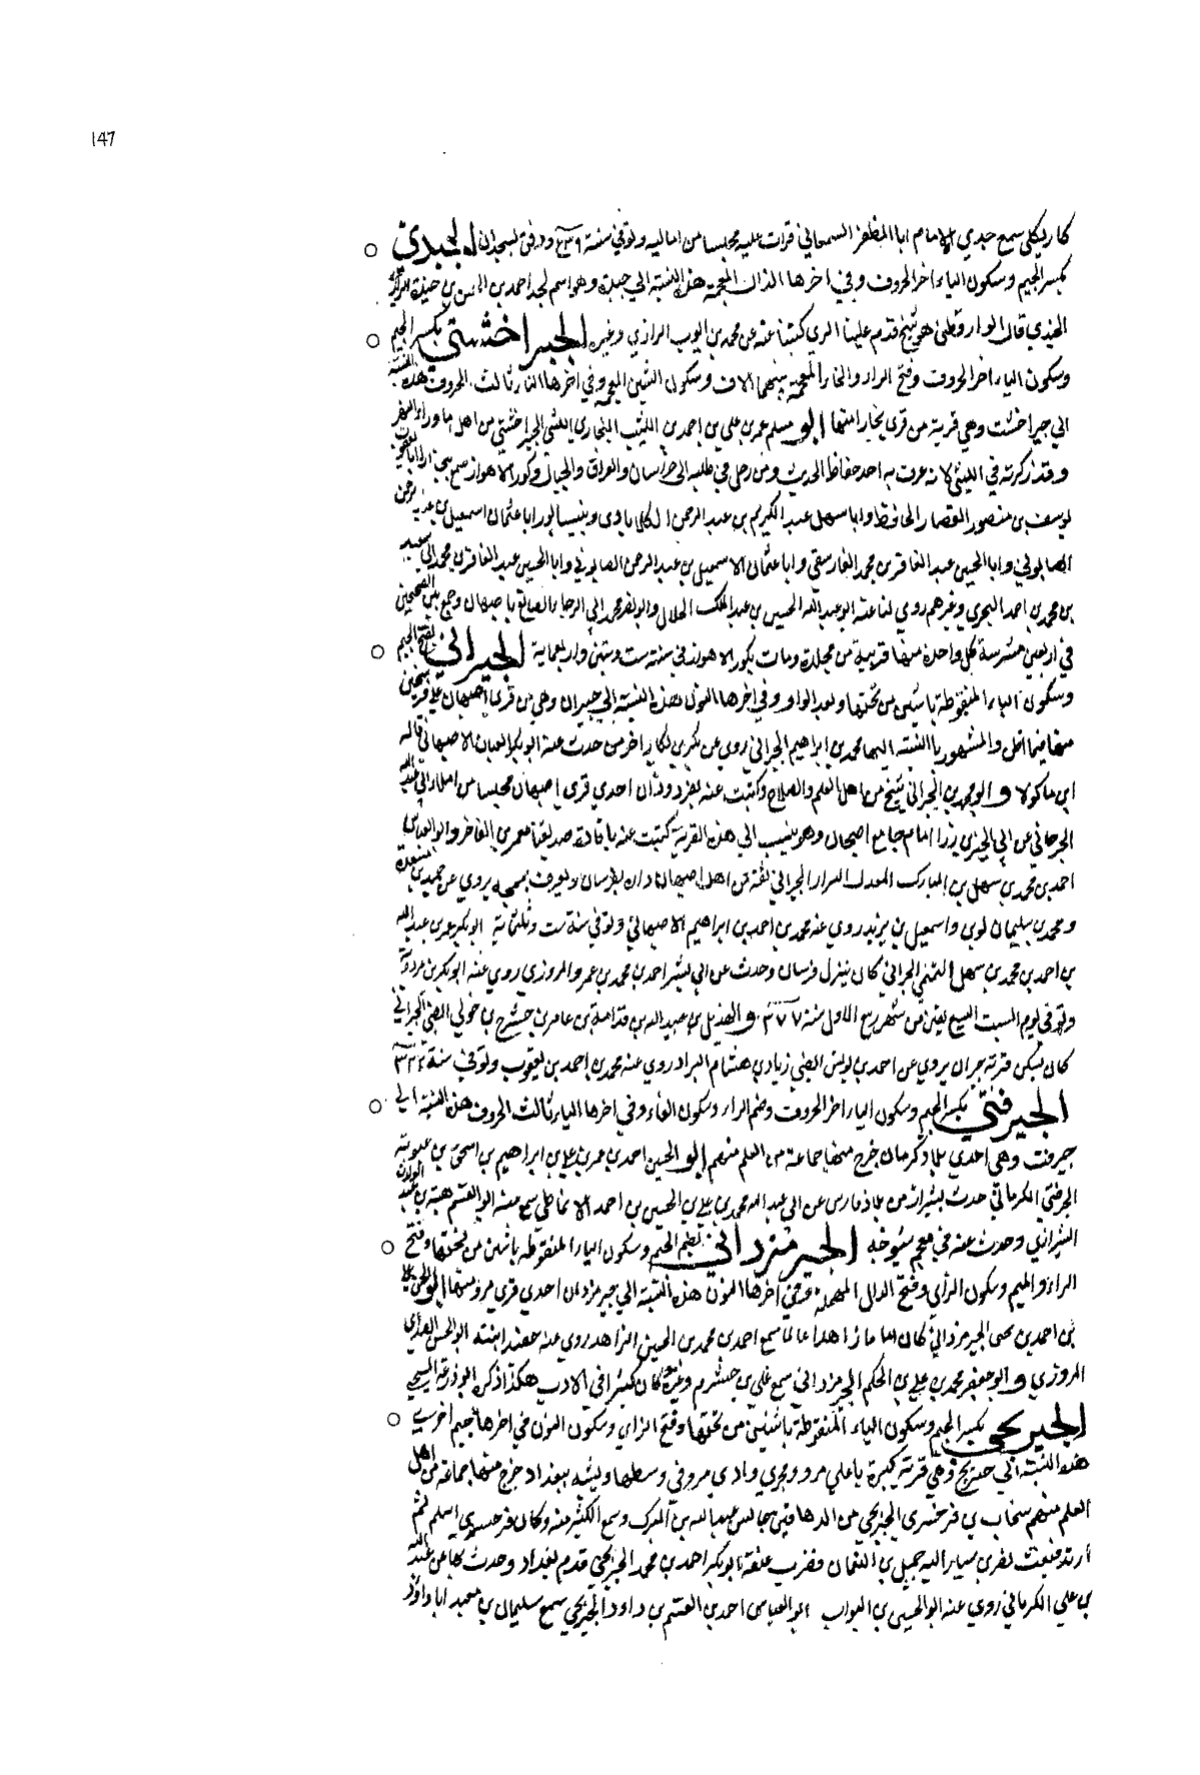 147
كاريكلي سمع جدي الامام ابا المظفر السمعاني قرات عليه مجلسا من اماليه وتوفي سنة ودفن بسجذان الجيذي
بكسر الجيم وسكون الياء اخر الحروف وفي اخرها الذال المعجمة هذه النسبة الي جيذة وهو اسم لجد احمد بن الحسن بن جيذة الرازي
الجيذي قال الدارقطني هو شيخ قدم علينا الري كتبنا عنه عن محمد بن ايوب الرازي وغيره الجيراخشتي بكسر الجيم
وسكون الياء اخر الحروف وفتح الراء والخاء المعجمة بينهما الالف وسكون الشين المعجمة وفي اخرها التاء ثالث الحروف هذه النسبة
الي جيراخشت وهي قرية من قري بخارا منها ابو مسلم عمر بن علي بن احمد بن الليث البخاري الليثي الجيراخشتي من اهل ما وراء النهر
وقد ذكرته في الليثي لانه عرف به احد حفاظ الحديث ومن رحل في طلبه الى خراسان والعراق والجبال وكور الاهواز سمع ببخارا ابا يعقوب
يوسف بن منصور القصار الحافظ وابا سهل عبد الكريم بن عبد الرحمن الكلاباذي وبنيسابور ابا عثمان اسمعيل بن عبد الرحمن
الصابوني وابا الحسين عبد الغافر بن محمد الفارسي وابا عثمان الاسمعيل بن عبد الرحمن الصابوني وابا الحسين عبد الغافر بن محمد الي سعيد
بن محمد بن احمد البحري وغيرهم روي لنا عنه ابو عبد الله الحسين بن عبد الملك الخلال وابو نصر محمد ابي الرجاء الصايغ باصبهان وجمع بين الصحيحين
في اربعين مشرسة كل واحدة منها قريبة من مجلدة ومات بكور الاهواز في سنة ست وستين واربعماية الجيراني بفتح الجيم
وسكون الياء المنقوطة باثنتين من تحتها وبعد الواو وفي اخرها النون هذه النسبة الي جيران وهي من قري اصبهان علي فرسخين
منها فيما اظن والمشهور بالنسبة اليها محمد بن ابراهيم الجيراني روي عن بكر بن بكار اخر من حدث عنه ابو بكر القباب الاصبهاني قاله
ابن ماكولا و ابو محمد بن الجيراني شيخ من اهل العلم والصلاح وكتبت عنه احدي قري اصبهان مجلسا من املاء ابي عبد الله
الجرجاني عن ابي الحسين امام جامع اصبهان وهو ينسب الي هذه القرية كتبت عنه بافادة صديقنا معمر بن الفاخر وابو العباس
احمد بن محمد بن سهل بن المبارك المعدل البزار الجيراني ثقة من اهل اصبهان ويعرف بممجه يروي عن حميد بن مسعدة
ومحمد بن سليمان لوين واسمعيل بن يزيد روي عنه محمد بن احمد بن ابراهيم الاصبهاني وتوفي سنة ست وثلثماية ابو بكر عمر بن عبد الله
بن احمد بن محمد بن سهل التميمي الجيراني كان ينزل فرسان وحدث عن ابي بشر احمد بن محمد بن عمرو المروزي روي عنه ابو بكر بن مردويه
وتوفي يوم السبت لسبع بقين من شهر ربيع الاول سنة ٣٧٧ و الهذيل بن عبيد الله بن قدامة بن عامر بن حشرج بن خولي الضبي الجيراني
كان يسكن قرية جيران يروي عن احمد بن يونس الضبي زياد بن هشام البراد روي عنه محمد بن احمد بن يعقوب وتوفي سنة ٣٢٢
الجيرفتي بكسر الجيم وسكون الياء اخر الحروف وضم الراء وسكون الفاء وفي اخرها التاء ثالث الحروف هذه النسبة الي
جيرفت وهي احدي بلاد كرمان خرج منها جماعة من العلم منهم ابو الحسين احمد بن عمر بن علي بن ابراهيم بن اسحق
الجيرفتي الكرماني حدث بشيراز من بلاد فارس عن ابي عبد الله محمد بن علي بن الحسين بن احمد الانماطي سمع منه ابو القسم هبة بن عبد الوارث
الشيرازي وحدث عنه في معجم شيوخه الجيرمزداني بفتح الجيم وسكون الياء المنقوطة باثنتين من تحتها وفتح
الراء والميم وسكون الزاي وفتح الدال المهملة وفي اخرها النون هذه النسبة الي جيرمزدان احدي قري مرو منها ابو الحسن علي
بن احمد بن يحيى الجيرمزداني كان اماما زاهدا عالما سمع احمد بن محمد بن الحسين الزاهد روي عنه حفيد ابنته ابو الحسن
المروزي و ابو جعفر محمد بن علي بن الحكم الجيرمزداني سمع علي بن خشرم وغيره كان كثيرا في الادب هكذا ذكره ابو زرعة السنجي
الجيرنجي بكسر الجيم وسكون الياء المنقوطة باثنتين من تحتها وفتح الزاي وسكون النون في اخرها جيم اخري
هذه النسبة الي جيرنج وهي قرية كبيرة باعلي مرو ويجري وادي مرو في وسطها وليشبه ببغداد خرج منها جماعة من اهل
العلم منهم سنجاب بن فرخسري الجيرنجي من الدهاقين جالس عبد الله بن المبارك وسمع الكثير منه وكان فرخسري اسلم ثم
ارتد فبعث نصر بن سيار اليه جميل بن النعمان وضرب عنقه ابو بكر احمد بن محمد الجيرنجي قدم بغداد وحدث بها عن عبد الله
بن علي الكرماني روي عنه ابو الحسين بن البواب ابو العباس احمد بن القسم بن داود الجيرنجي سمع سليمان بن معبد ابا داود